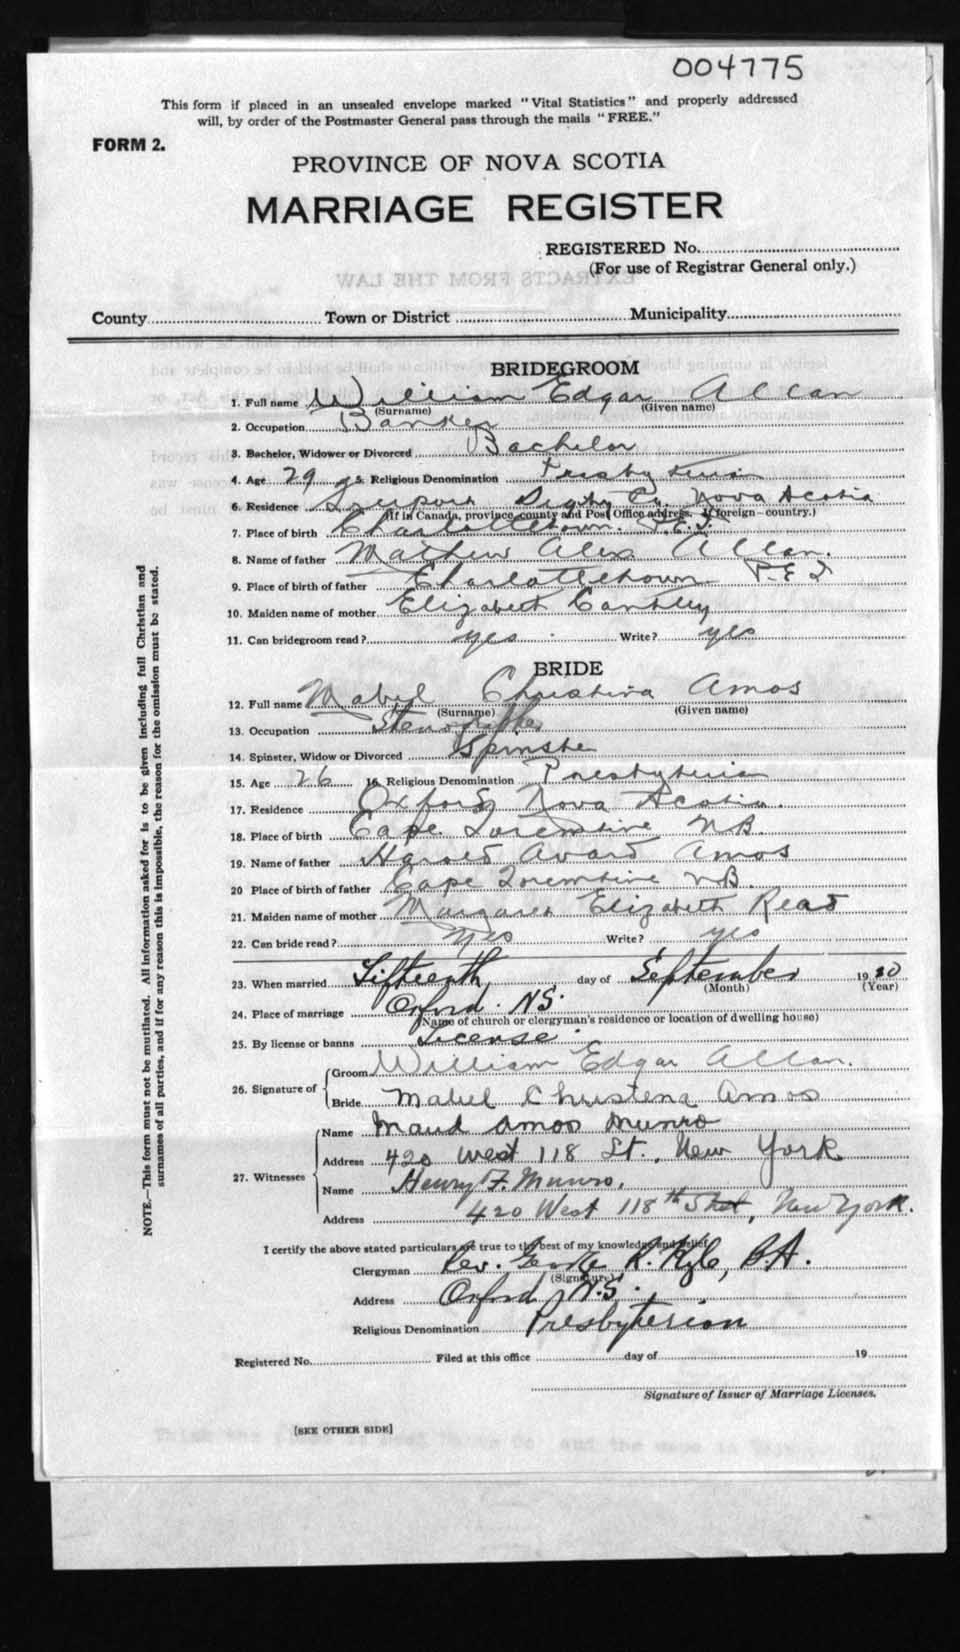 004775
This form if placed in an unsealed envelope marked "Vital Statistics" and properly addressed
will, by order of the Postmaster General pass through the mails "FREE."
FORM 2.
PROVINCE OF NOVA SCOTIA
MARRIAGE REGISTER
REGISTERED No.
(For use of Registrar General only.)
EXTRACTS FROM THE LAW
County Town or District Municipality
BRIDEGROOM
1. Full name William Edgar Allan
(Surname) (Given name)
2. Occupation Banker
3. Bachelor, Widower or Divorced Bachelor
4. Age 29 5. Religious Denomination Presbyterian
6. Residence Digby Co. Nova Scotia
(If in Canada, province, county and Post Office address. If foreign—country.)
7. Place of birth Charlottetown. P.E.I
8. Name of father Mathew Alex Allan.
9. Place of birth of father Charlottetown P.E.I
10. Maiden name of mother Elizabeth
11. Can bridegroom read? yes Write? yes
BRIDE
12. Full name Mabel Christina Amos
(Surname) (Given name)
13. Occupation Stenographer
14. Spinster, Widow or Divorced Spinster
15. Age 26 16. Religious Denomination Presbyterian
17. Residence Oxford Nova Scotia.
18. Place of birth Cape Tormentine NB.
19. Name of father Harold Avard Amos
20 Place of birth of father Cape Tormentine NB.
21. Maiden name of mother Margaret Elizabeth Read
22. Can bride read? yes Write? yes
23. When married Fifteenth, day of September 1920
(Month) (Year)
24. Place of marriage Oxford. NS.
(Name of church or clergyman's residence or location of dwelling house)
25. By license or banns License.
26. Signature of Groom William Edgar Allan.
Bride Mabel Christena Amos
27. Witnesses Name Maud Amos Munro
Address 420 West 118 St., New York
Name Henry F. Munro,
Address 420 West 118th Street, New York.
I certify the above stated particulars are true to the best of my knowledge and belief.
Clergyman Rev. George R. B.A.
(Signature)
Address Oxford N.S.
Religious Denomination Presbyterian
Registered No. Filed at this office day of 19
Signature of Issuer of Marriage Licenses.
[SEE OTHER SIDE]
NOTE.—This form must not be mutilated. All information asked for is to be given including full Christian and
surnames of all parties, and if for any reason this is impossible, the reason for the omission must be stated.